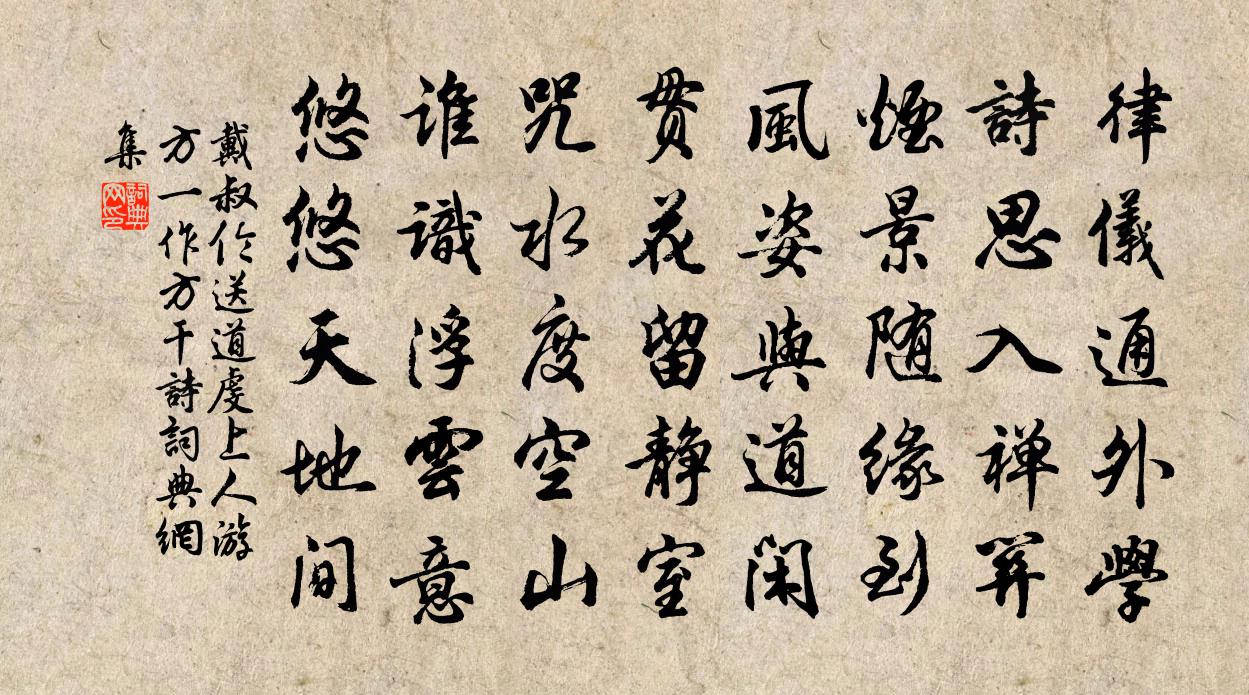 律儀通外學
詩思入禅關
煙景随緣到
風姿與道閑
貫花留静室
咒水度空山
誰識浮雲意
悠悠天地間
戴叔伦送道虔上人游
方一作方干詩詞典網
集
詞典网印